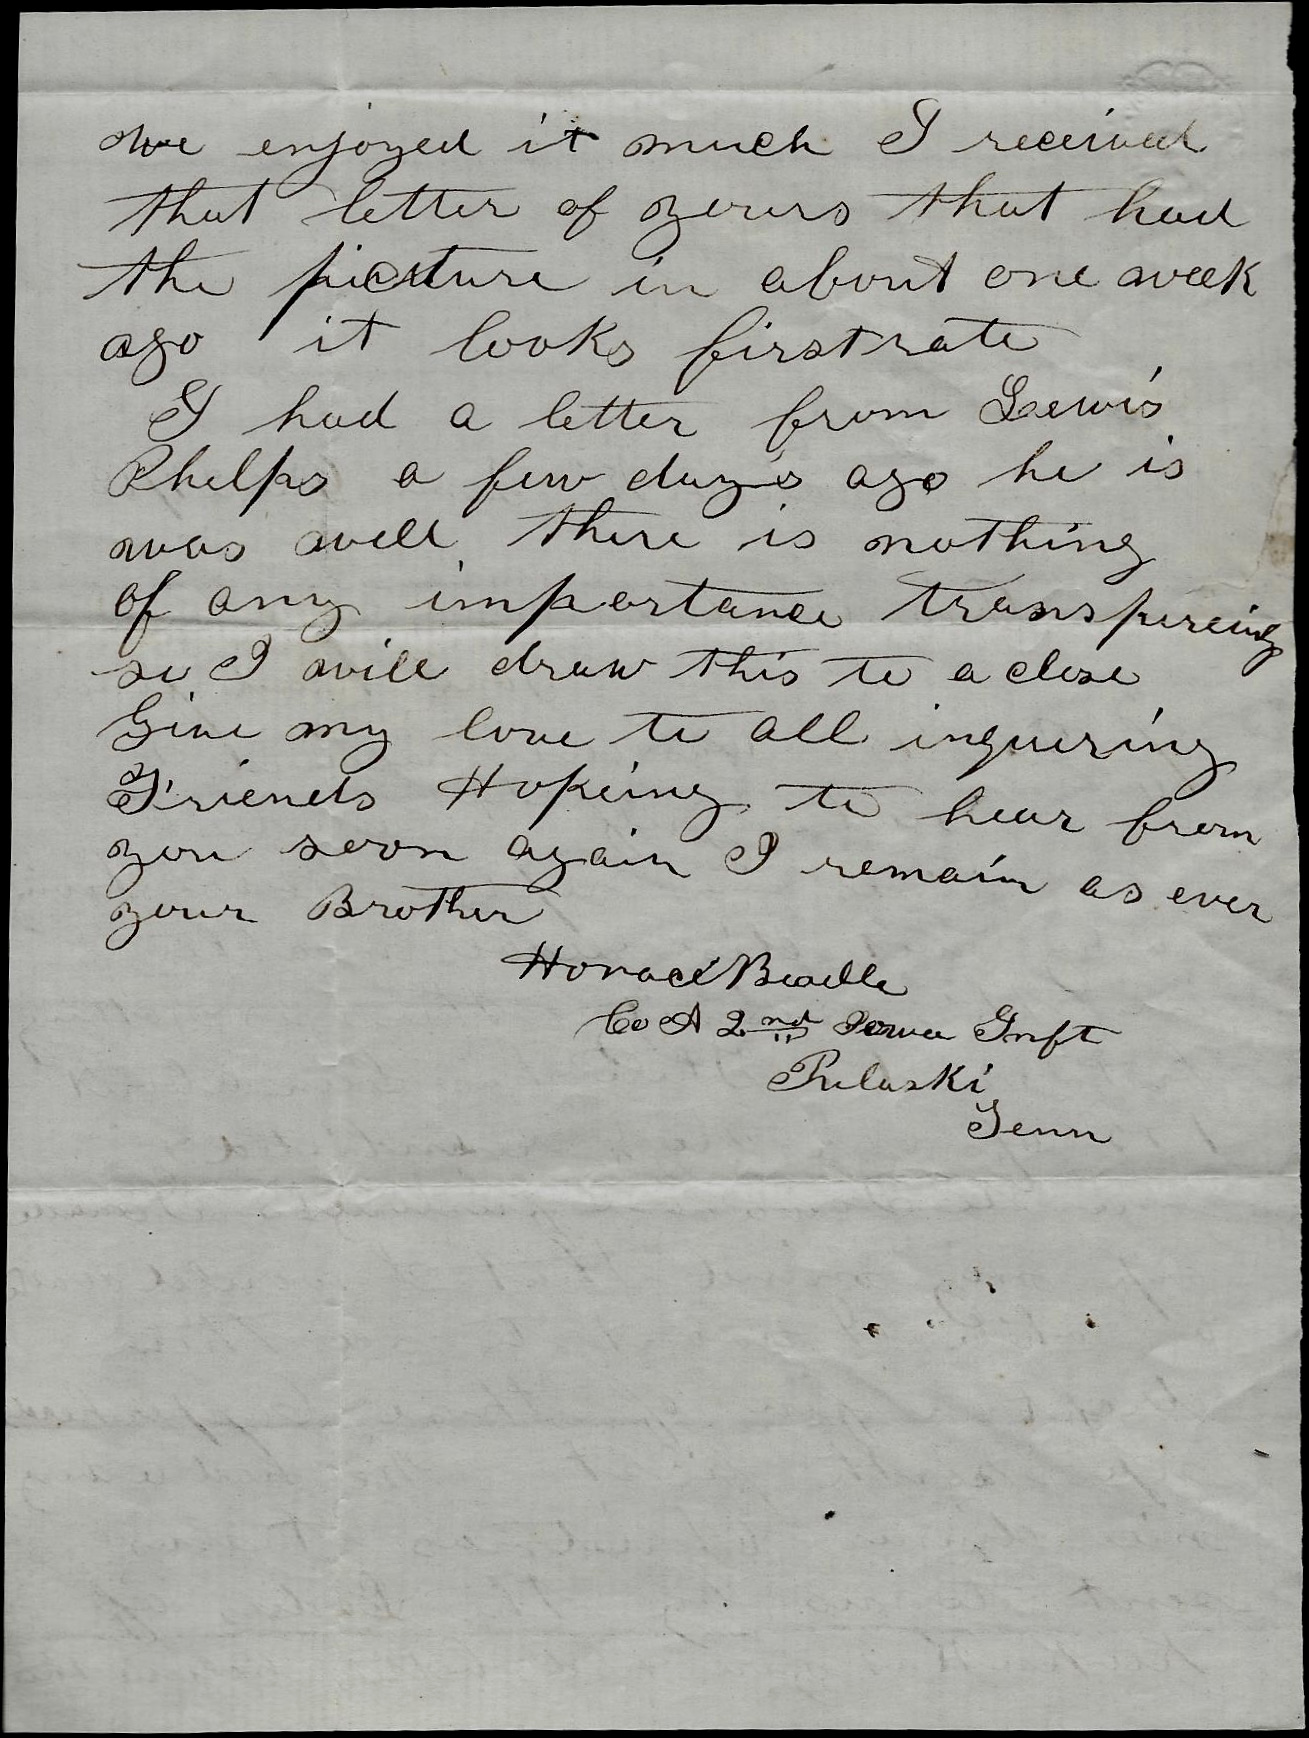 we enjoyed it much I received
that letter of yours that had
the picture in about one week
ago it looks firstrate
I had a letter from Lewis
Phelps a few day's ago he is
was well there is nothing
of any importance transpireing
so I will draw this to a close
Give my love to all inquering
Friends Hopeing to hear from
you soon again I remain as ever
your Brother
Horace Beadle
Co A 2nd Iowa Inft
Pulaski
Tenn